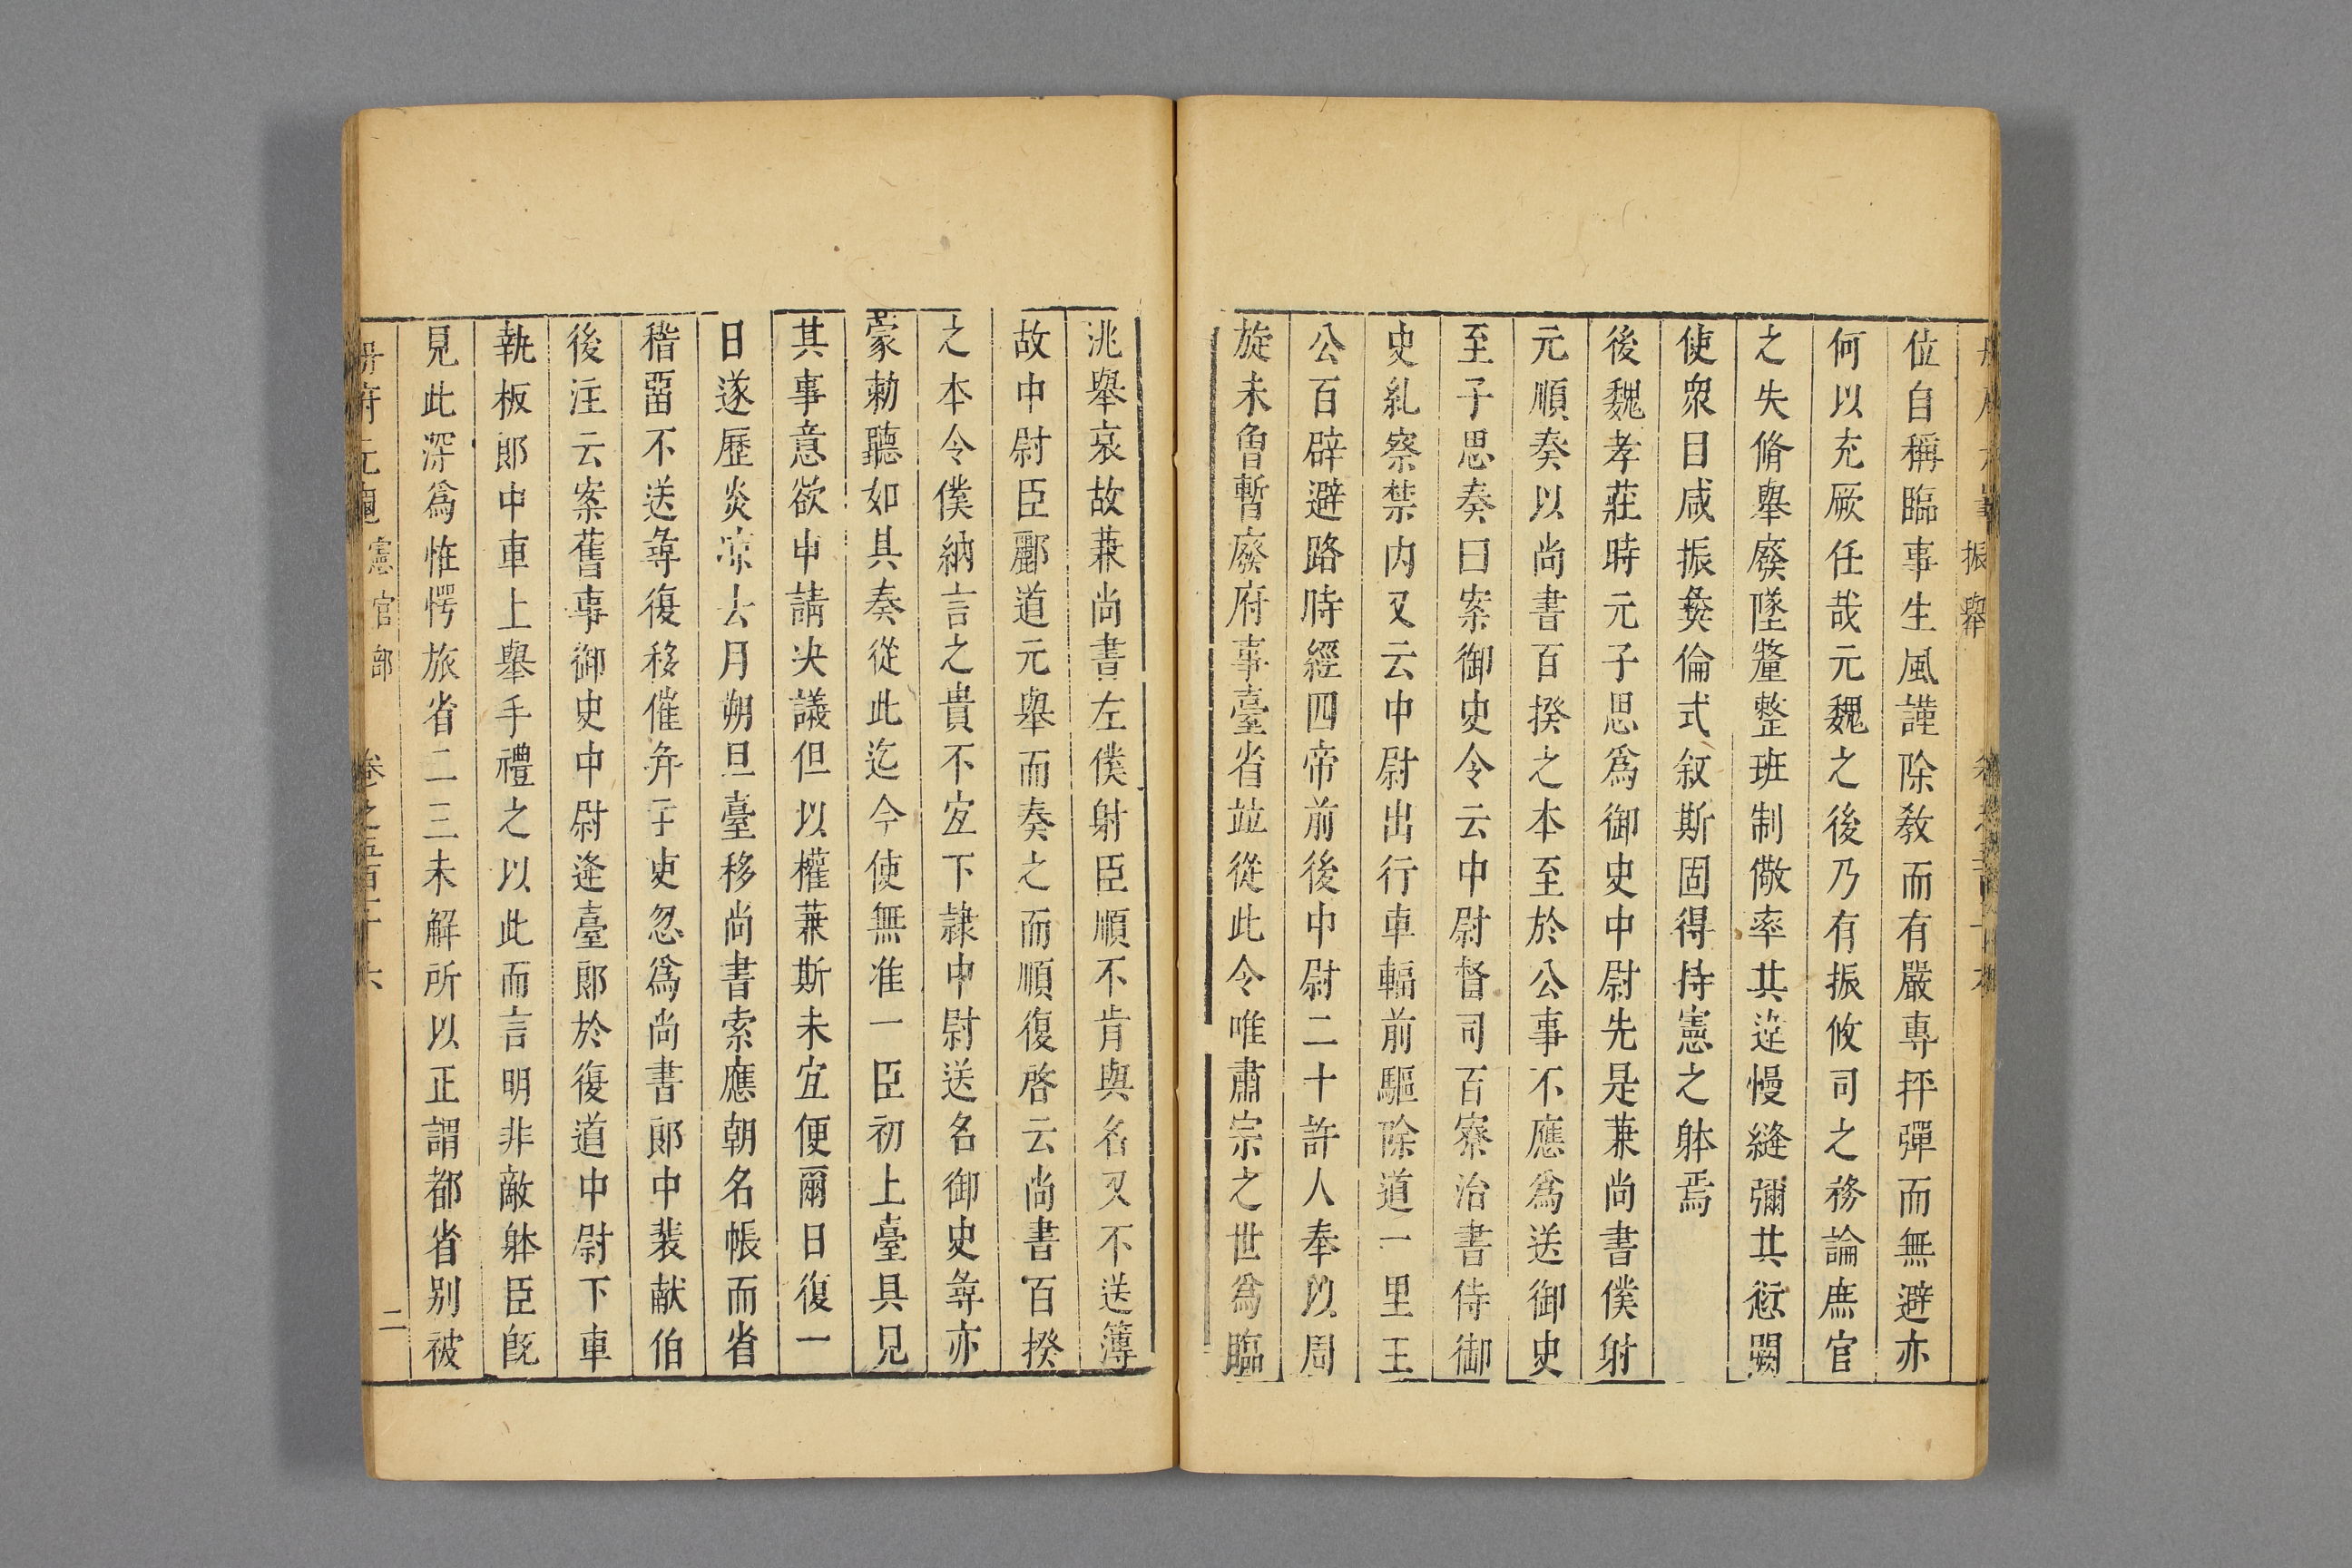 振舉
位自稱臨事生風謹除教而有嚴專抨彈而無避亦
何以充厥任哉元魏之後乃有振攸司之務論庶官
之失脩舉廢墜釐整班制儆率其違慢縫彌其愆闕
使衆目咸振彜倫式叙斯固得持憲之躰焉
後魏孝莊時元子思爲御史中尉先是兼尚書僕射
元順奏以尚書百揆之本至於公事不應爲送御史
至子思奏曰案御史令云中尉督司百寮治書侍御
史糺察禁内又云中尉出行車輻前驅除道一里王
公百辟避路時經四帝前後中尉二十許人奉以周
旋未魯暫廢府事臺省並從此令唯肅宗之世爲臨
洮舉哀故兼尚書左僕射臣順不肯與名又不送簿
故中尉臣酈道元舉而奏之而順復啓云尚書百揆
之本令僕納言之貴不宐下隷中尉送名御史尋亦
蒙勅聽如其奏從此迄今使無准一臣初上臺具見
其事意欲申請决議但以權兼斯未宜便爾日復一
日遂歷炎凉去月朔旦臺移尚書索應朝名帳而省
稽畱不送尋復移催并主吏忽爲尚書郎中裴献伯
後注云案舊事御史中尉逢臺郎於復道中尉下車
執板郎中車上舉手禮之以此而言明非敵躰臣旣
見此深爲恠愕旅省二三未解所以正謂都省别被
册府元龜 憲官部 卷之五百十六 二